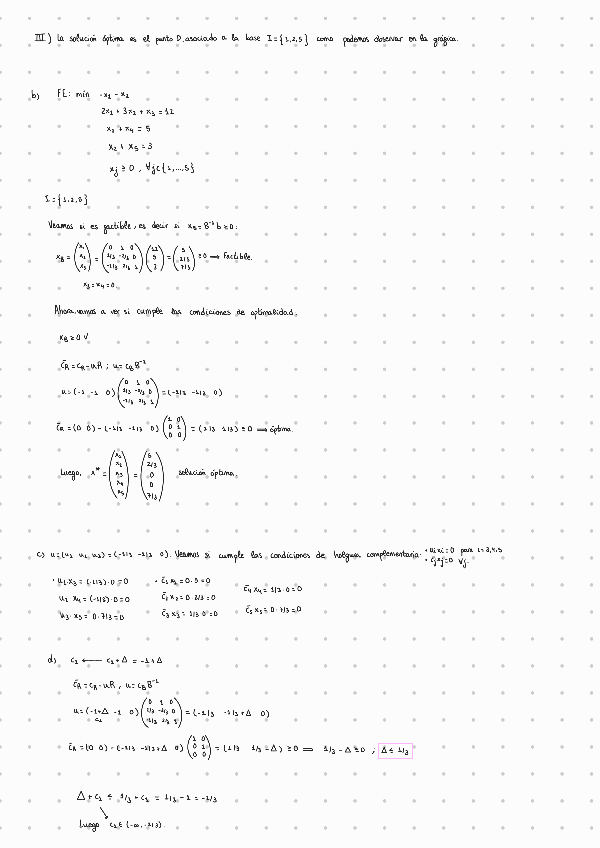 III) la solución óptima es el punto D, asociado a la base I={1,2,5} como podemos observar en la gráfica.
b) FE: min -x₁ - x₂
2x₁ + 3x₂ + x₃ = 12
x₁ + x₄ = 5
x₂ + x₅ = 3
xj ≥ 0, ∀j∈{1,...,5}
I={1,2,5}
Veamos si es factible, es decir si x_B = B⁻¹ b ≥ 0:
x_B = (x₁ x₂ x₅) = (0 1 0; 1/3 -2/3 0; -1/3 2/3 1) (12 5 3) = (5 2/3 7/3) ≥ 0 ⟹ Factible.
x₃ = x₄ = 0
Ahora vamos a ver si cumple las condiciones de optimalidad.
x_B ≥ 0 √
c̄_R = c_R - uR ; u = c_B B⁻¹
u = (-1 -1 0) (0 1 0; 1/3 -2/3 0; -1/3 2/3 1) = (-1/3 -1/3 0)
c̄_R = (0 0) - (-1/3 -1/3 0) (1 0; 0 1; 0 0) = (1/3 1/3) ≥ 0 ⟹ óptima.
Luego, x* = (x₁ x₂ x₃ x₄ x₅) = (5 2/3 0 0 7/3) solución óptima.
c) u = (u₁ u₂ u₃) = (-1/3 -1/3 0). Veamos si cumple las condiciones de holgura complementaria: • uᵢxᵢ=0 para i=3,4,5
• c̄jxj=0 ∀j.
• u₁·x₃ = (-1/3)·0 = 0 • c̄₁x₁ = 0·5 = 0 c̄₄x₄ = 1/3·0 = 0
u₂·x₄ = (-1/3)·0 = 0 c̄₂x₂ = 0·2/3 = 0 c̄₅x₅ = 0·7/3 = 0
u₃·x₅ = 0·7/3 = 0 c̄₃x₃ = 1/3·0 = 0
d) c₁ ⟵ c₁ + Δ = -1 + Δ
c̄_R = c_R - uR, u = c_B B⁻¹
u = (-1+Δ -1 0) (0 1 0; 1/3 -2/3 0; -1/3 2/3 1) = (-1/3 -1/3+Δ 0)
c₁
c̄_R = (0 0) - (-1/3 -1/3+Δ 0) (1 0; 0 1; 0 0) = (1/3 1/3-Δ) ≥ 0 ⟹ 1/3 - Δ ≥ 0 ; Δ ≤ 1/3
Δ + c₁ ≤ 1/3 + c₁ = 1/3 - 1 = -2/3
Luego c₁ ∈ (-∞, -2/3).